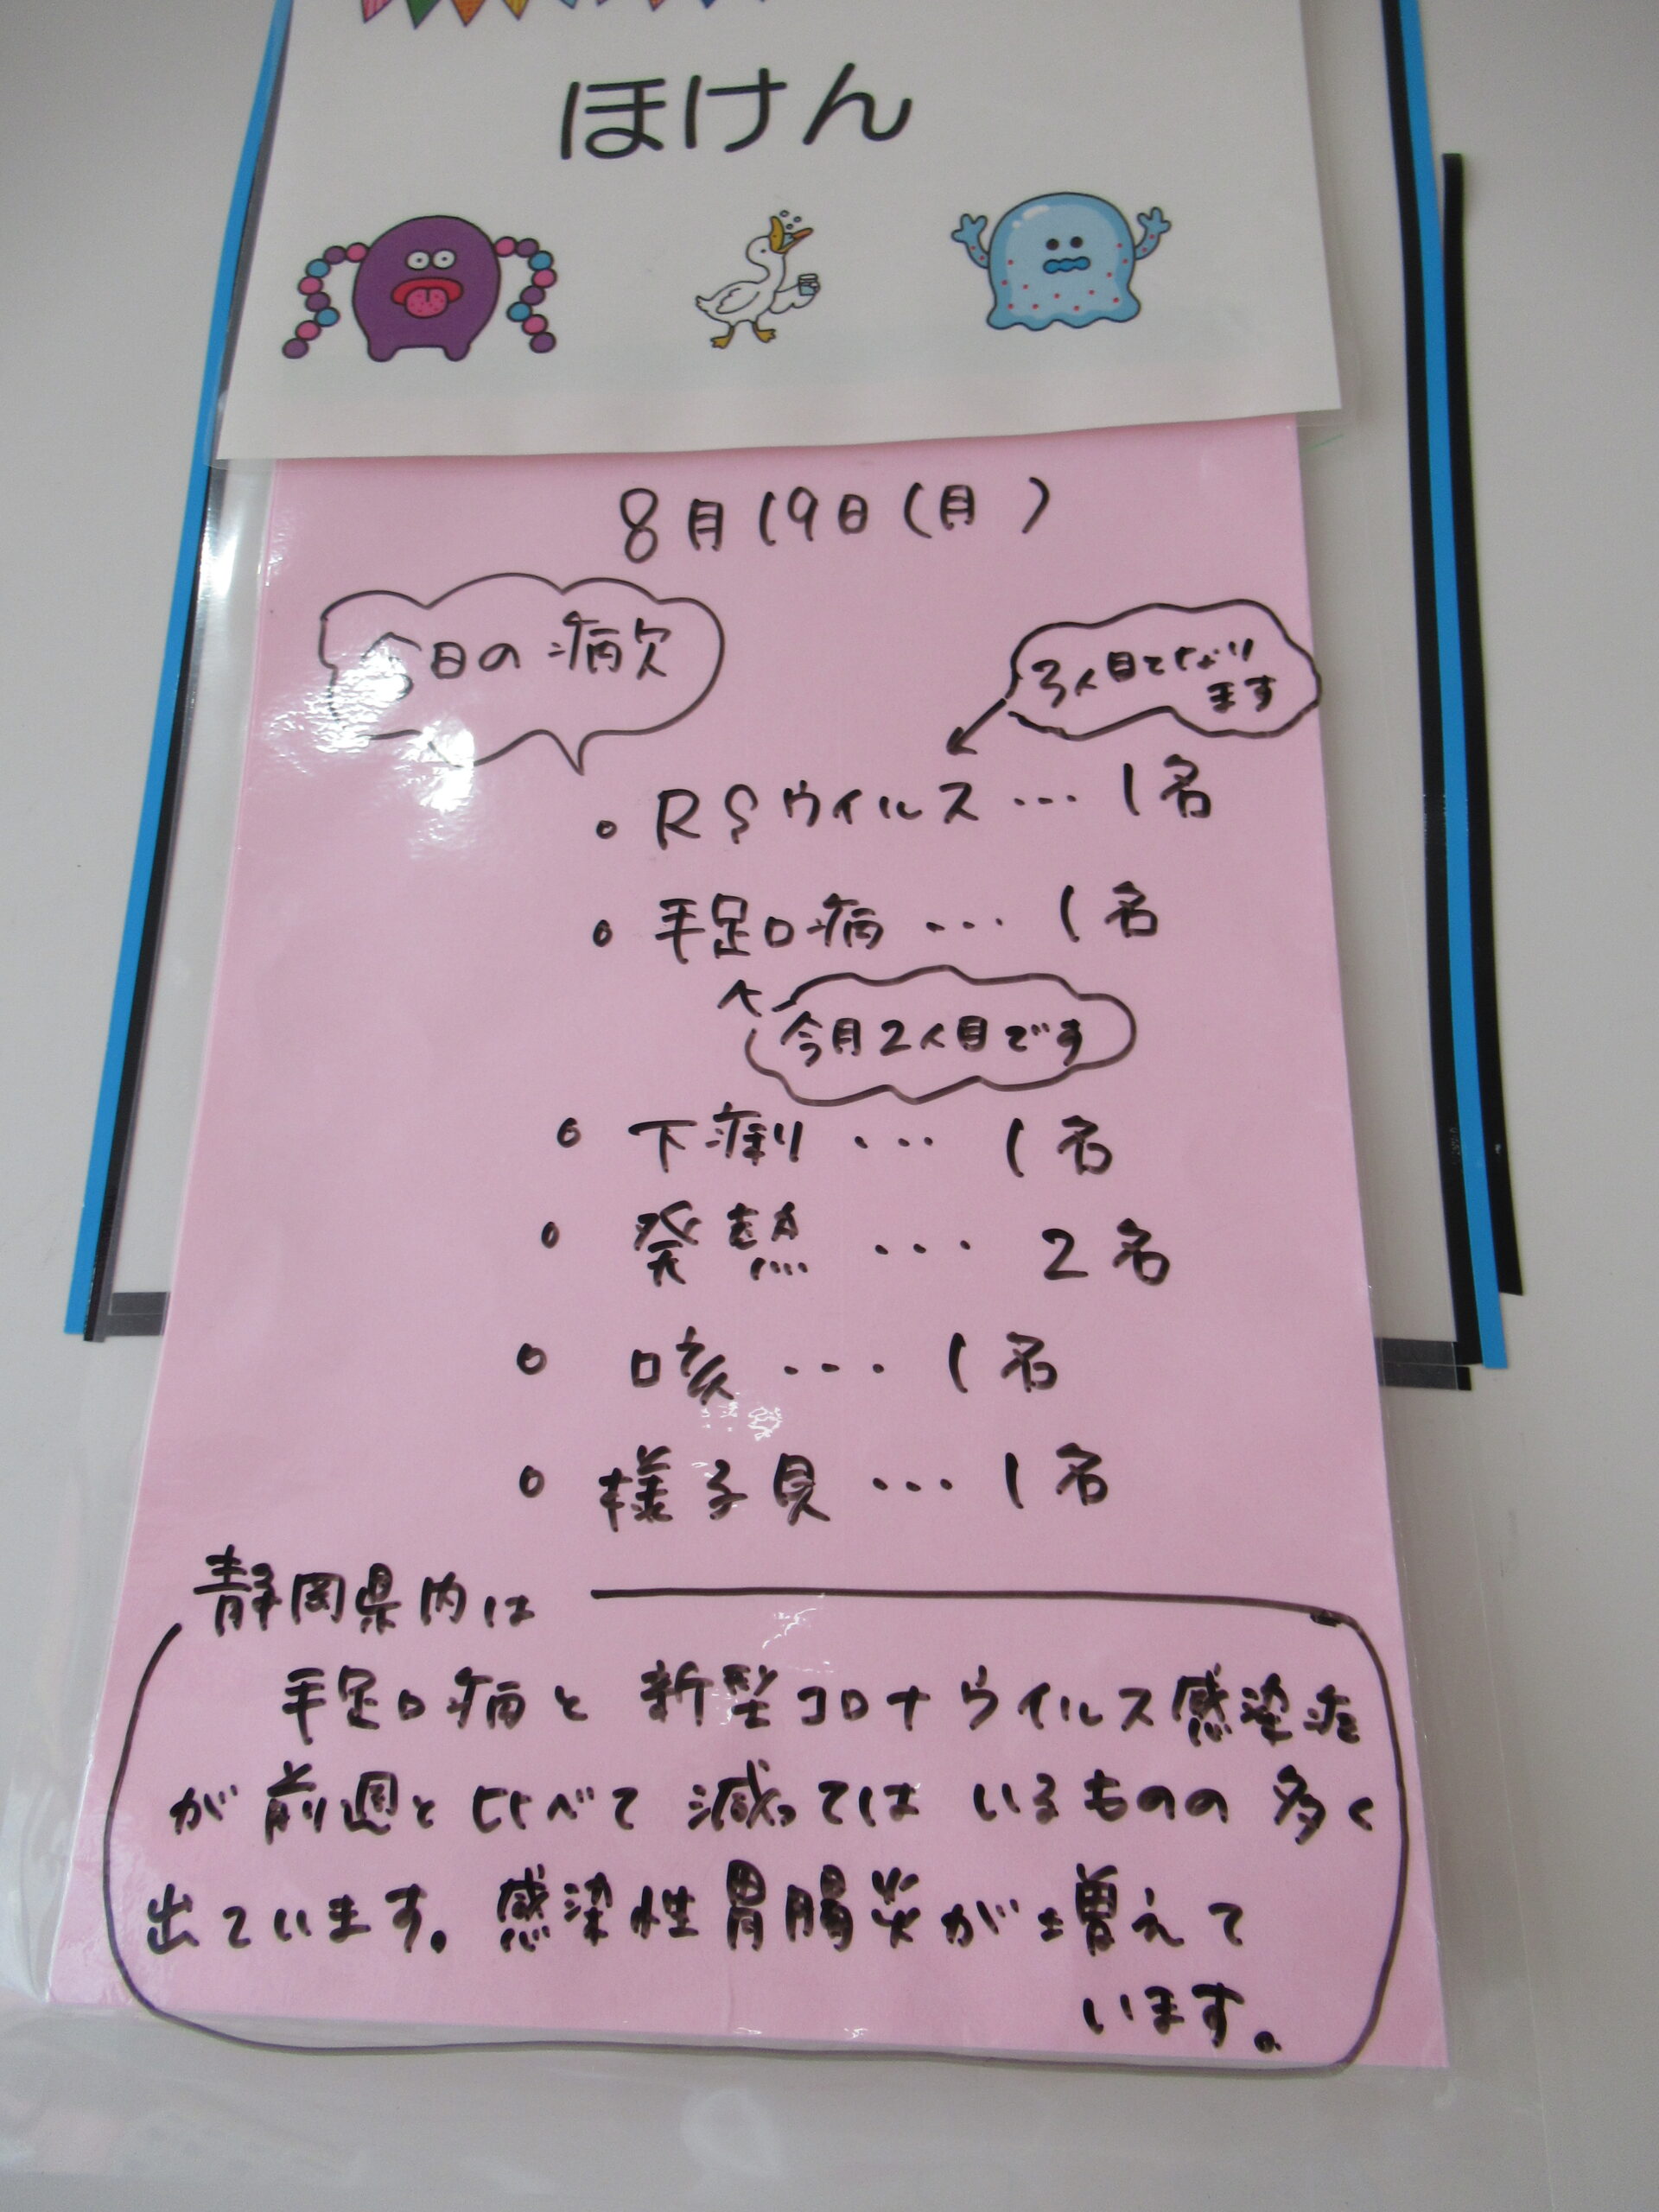 ほけん
8月19日(月)
今日の病欠
3人目となり
ます
RSウイルス…1名
手足口病…1名
今月2人目です
下痢…1名
発熱…2名
咳…1名
様子見…1名
静岡県内は
手足口病と新型コロナウイルス感染症
が前週と比べて減ってはいるものの多く
出ています。感染性胃腸炎が増えて
います。